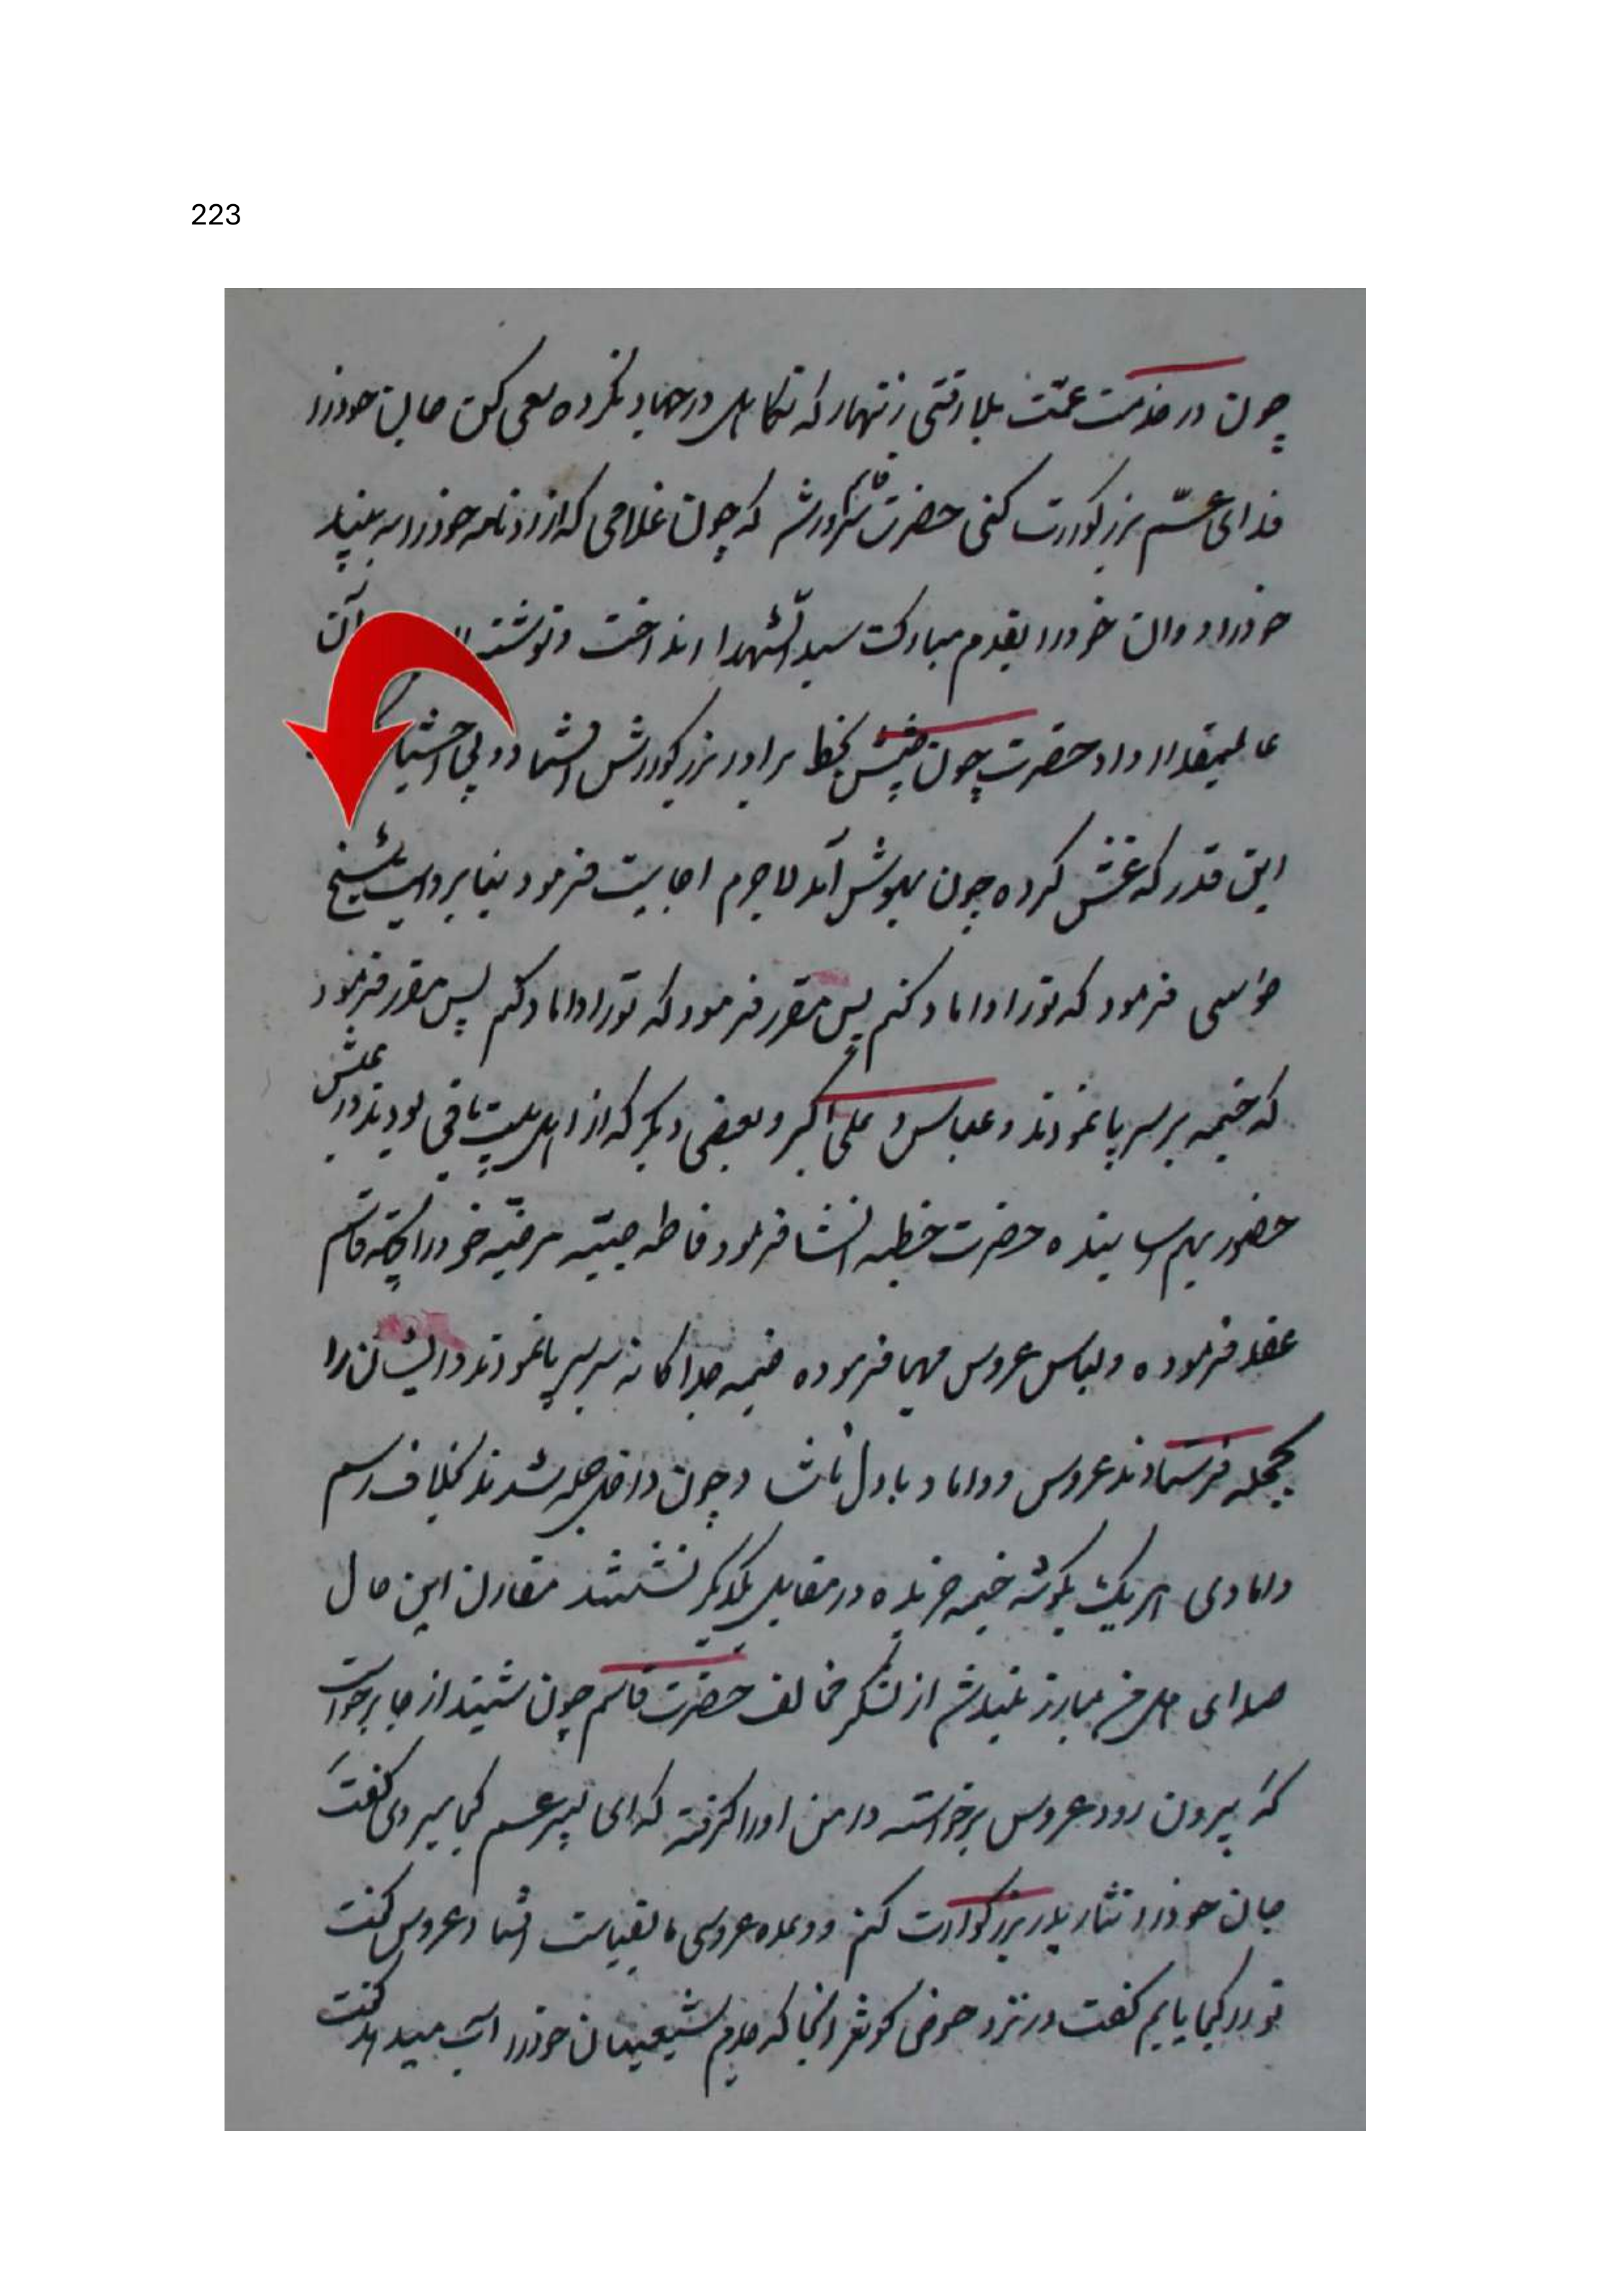 223
چون در خدمت عمّت بکربلا رفتی زنهار که تکاهل در جهاد نکرده سعی کن جان خود را
فدای عمّ بزرگوارت کنی حضرت قاسم که چون غلامی که آزادنامه خود را به بیند
خود را دوان خود را بقدم مبارک سید الشهدا انداخت و نوشته آن
عالیمقدار داد حضرت چون چشمش بخط برادر بزرگوارش افتاد و بی اختیار
این قدر که غش کرده چون بهوش آمد لاجرم اجابت فرمود بنا بروایت شیخ
فرمود که تو را داماد کنم پس مقرر فرمود که تو را داماد کنم پس مقرر فرمود
که خیمه بر سر پا نمودند و عباس و علی اکبر و بعضی دیگر که از اهل بیت باقی بودند در
حضور بهم حضرت خطبه انشا فرمود فاطمه صبیّه مرضیّه خود را بجهة قاسم
عقد فرموده و لباس عروس مهیا فرموده خیمه جداگانه بر سر پا نمودند و ایشان را
بحجله فرستادند عروس و داماد با دل ناشاد و چون داخل حجله شدند بخلاف رسم
دامادی هر یک بگوشه خیمه خزیده در مقابل یکدیگر نشستند مقارن این حال
صدای هل من مبارز بلند شد از لشکر مخالف حضرت قاسم چون شنید از جا برخواست
که بیرون رود عروس برخواسته دامن او را گرفته که ای پسر عم کجا میروی گفت
جان خود را نثار پدر بزرگوارت کنم و وعده عروسی ما بقیامت افتاد عروس گفت
تو را در کجا یابم گفت در نزد حوض کوثر آنجا که جدم شیعیان خود را آب میدهد گفت